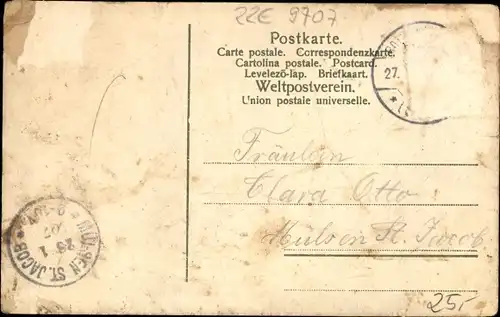 22E 9707
Postkarte.
Carte postale. Correspondenzkarte
Cartolina postale. Postcard.
Levelező-lap. Briefkaart.
Weltpostverein.
Union postale universelle.
27.
Fräulein
Clara Otto
Mülsen St. Jacob
MÜLSEN ST. JACOB
25,-